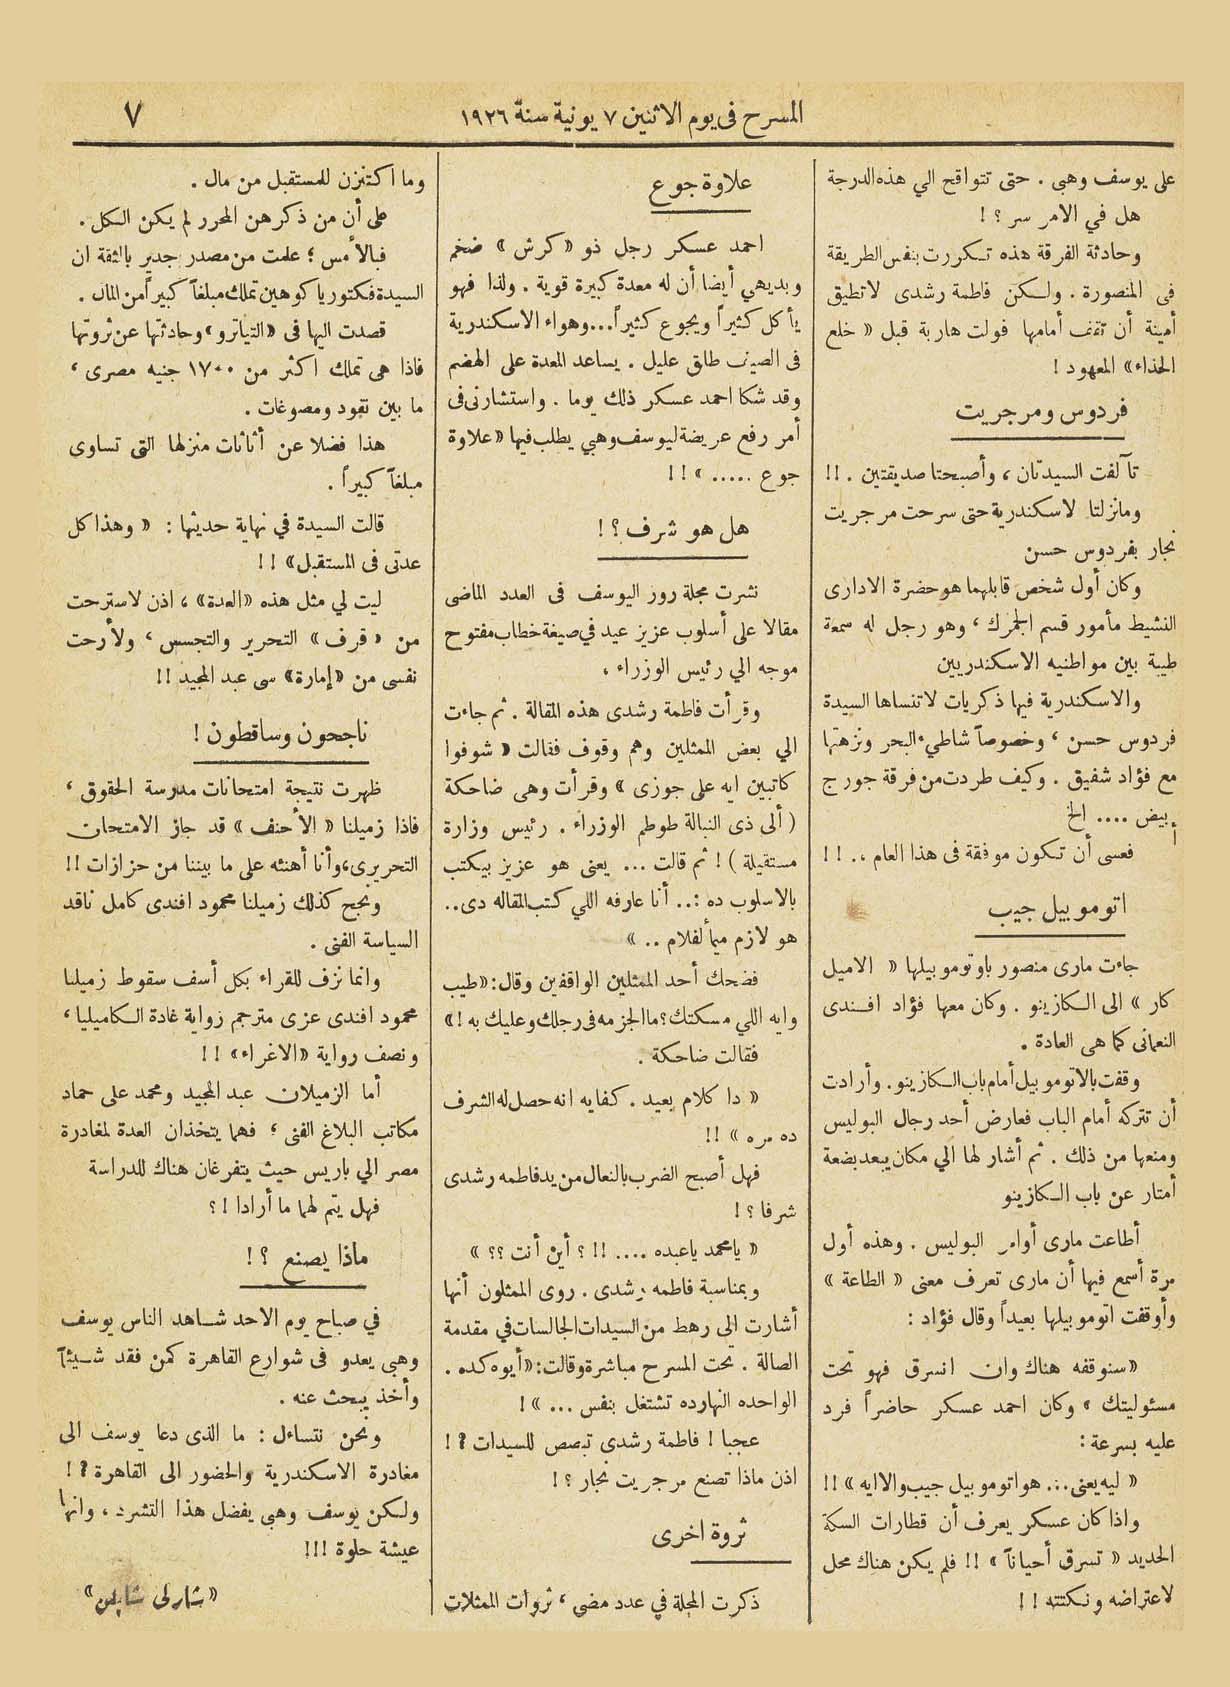 المسرح فى يوم الاثنين ٧ يونية سنة ١٩٢٦
٧
على يوسف وهبى . حتى تتواقح الي هذه الدرجة
هل في الامر سر ؟ !
وحادثة الفرقة هذه تكررت بنفس الطريقة
فى المنصورة . ولكن فاطمة رشدى لا تطيق
أمينة أن تقف أمامها فولت هاربة قبل « خلع
الحذاء » المعهود !
فردوس ومرجريت
تآلفت السيدتان ، وأصبحتا صديقتين . !!
ومانزلتا لاسكندرية حتى سرحت مرجريت
نجار بفردوس حسن
وكان أول شخص قابلهما هو حضرة الادارى
النشيط مأمور قسم الجمرك ، وهو رجل له سمعة
طيبة بين مواطنيه الاسكندريين
والاسكندرية فيها ذكريات لا تنساها السيدة
فردوس حسن ، وخصوصاً شاطىء البحر ونزهتها
مع فؤاد شفيق . وكيف طردت من فرقة جورج
أبيض .... الخ
فعسى أن تكون موفقة فى هذا العام .. !!
اتوموبيل جيب
جاءت مارى منصور باوتوموبيلها « الاميل
كار » الى الكازينو . وكان معها فؤاد افندى
النعمانى كما هى العادة .
وقفت بالاتوموبيل أمام باب الكازينو . وأرادت
أن تتركه أمام الباب فعارض أحد رجال البوليس
ومنعها من ذلك . ثم أشار لها الي مكان يبعد بضعة
أمتار عن باب الكازينو
أطاعت مارى أوامر البوليس . وهذه أول
مرة أسمع فيها أن مارى تعرف معنى « الطاعة »
وأوقفت اتوموبيلها بعيداً وقال فؤاد :
« سنوقفه هناك وان انسرق فهو تحت
مسئوليتك » وكان احمد عسكر حاضراً فرد
عليه بسرعة :
« ليه يعنى ... هو اتوموبيل جيب والا ايه » !!
واذا كان عسكر يعرف أن قطارات السكة
الحديد « تسرق أحياناً » !! فلم يكن هناك محل
لاعتراضه ونكتته ! !
علاوة جوع
احمد عسكر رجل ذو « كرش » ضخم
وبديهي أيضا أن له معدة كبيرة قوية . ولذا فهو
يأكل كثيراً ويجوع كثيراً ... وهواء الاسكندرية
فى الصيف طلق عليل . يساعد المعدة على الهضم
وقد شكا احمد عسكر ذلك يوما . واستشارنى فى
أمر رفع عريضة ليوسف وهبي يطلب فيها « علاوة
جوع ..... » ! !
هل هو شرف ؟ !
نشرت مجلة روز اليوسف فى العدد الماضى
مقالا على أسلوب عزيز عيد في صيغة خطاب مفتوح
موجه الي رئيس الوزراء .
وقرأت فاطمة رشدى هذه المقالة . ثم جاءت
الي بعض الممثلين وهم وقوف فقالت « شوفوا
كاتبين ايه على جوزى » وقرأت وهى ضاحكة
( ألى ذى النبالة طوطم الوزراء . رئيس وزارة
مستقيلة ) ! ثم قالت ... يعنى هو عزيز بيكتب
بالاسلوب ده : .. أنا عارفه اللي كتب المقاله دى ..
هو لازم .. »
فضحك أحد الممثلين الواقفين وقال : « طيب
وايه اللي مسكتك ؟ ما الجزمه فى رجلك وعليك به ! »
فقالت ضاحكة .
« دا كلام بعيد . كفايه انه حصل له الشرف
ده مره » !!
فهل أصبح الضرب بالنعال من يد فاطمه رشدى
شرفا ؟ !
« يامحمد ياعبده .... !! ؟ أين أنت ؟؟ »
وبمناسبة فاطمه رشدى . روى الممثلون أنها
أشارت الى رهط من السيدات الجالسات في مقدمة
الصالة . تحت المسرح مباشرة وقالت : « أيوه كده .
الواحده النهارده تشتغل بنفس ... » !
عجبا ! فاطمة رشدى تبصص للسيدات ؟ !
اذن ماذا تصنع مرجريت نجار ؟ !
ثروة اخرى
ذكرت المجلة في عدد مضى ، ثروات الممثلات
وما اكتنزن للمستقبل من مال .
على أن من ذكرهن المحرر لم يكن الكل .
فبالأمس ؛ علمت من مصدر جدير بالثقة ان
السيدة فكتوريا كوهين تملك مبلغاً كبيراً من المال .
قصدت اليها فى « التياترو » وحادثتها عن ثروتها
فاذا هى تملك اكثر من ١٧٠٠ جنيه مصرى ،
ما بين نقود ومصوغات .
هذا فضلا عن أثاثات منزلها التى تساوى
مبلغاً كبيراً .
قالت السيدة في نهاية حديثها : « وهذا كل
عدتى فى المستقبل » ! !
ليت لي مثل هذه « العدة » ، اذن لاسترحت
من « قرف » التحرير والتجسس ، ولأرحت
نفسى من « إمارة » سى عبد المجيد !!
ناجحون وساقطون !
ظهرت نتيجة امتحانات مدرسة الحقوق ،
فاذا زميلنا « الأحنف » قد جاز الامتحان
التحريرى ، وأنا أهنئه على ما بيننا من حزازات !!
ونجح كذلك زميلنا محمود افندى كامل ناقد
السياسة الفنى .
وانما نزف للقراء بكل أسف سقوط زميلنا
محمود افندى عزى مترجم رواية غادة الكاميليا ،
ونصف رواية « الاغراء » !!
أما الزميلان عبد المجيد ومحمد على حماد
مكاتب البلاغ الفنى ؛ فهما يتخذان العدة لمغادرة
مصر الي باريس حيث يتفرغان هناك للدراسة
فهل يتم لهما ما أرادا ! ؟
ماذا يصنع ؟ !
في صباح يوم الاحد شاهد الناس يوسف
وهبى يعدو فى شوارع القاهرة كمن فقد شيئاً
وأخذ يبحث عنه .
ونحن نتساءل : ما الذى دعا يوسف الى
مغادرة الاسكندرية والحضور الى القاهرة ؟ !
ولكن يوسف وهبى يفضل هذا التشرد ، وانها
عيشة حلوة !!!
« شارلى شابلن »